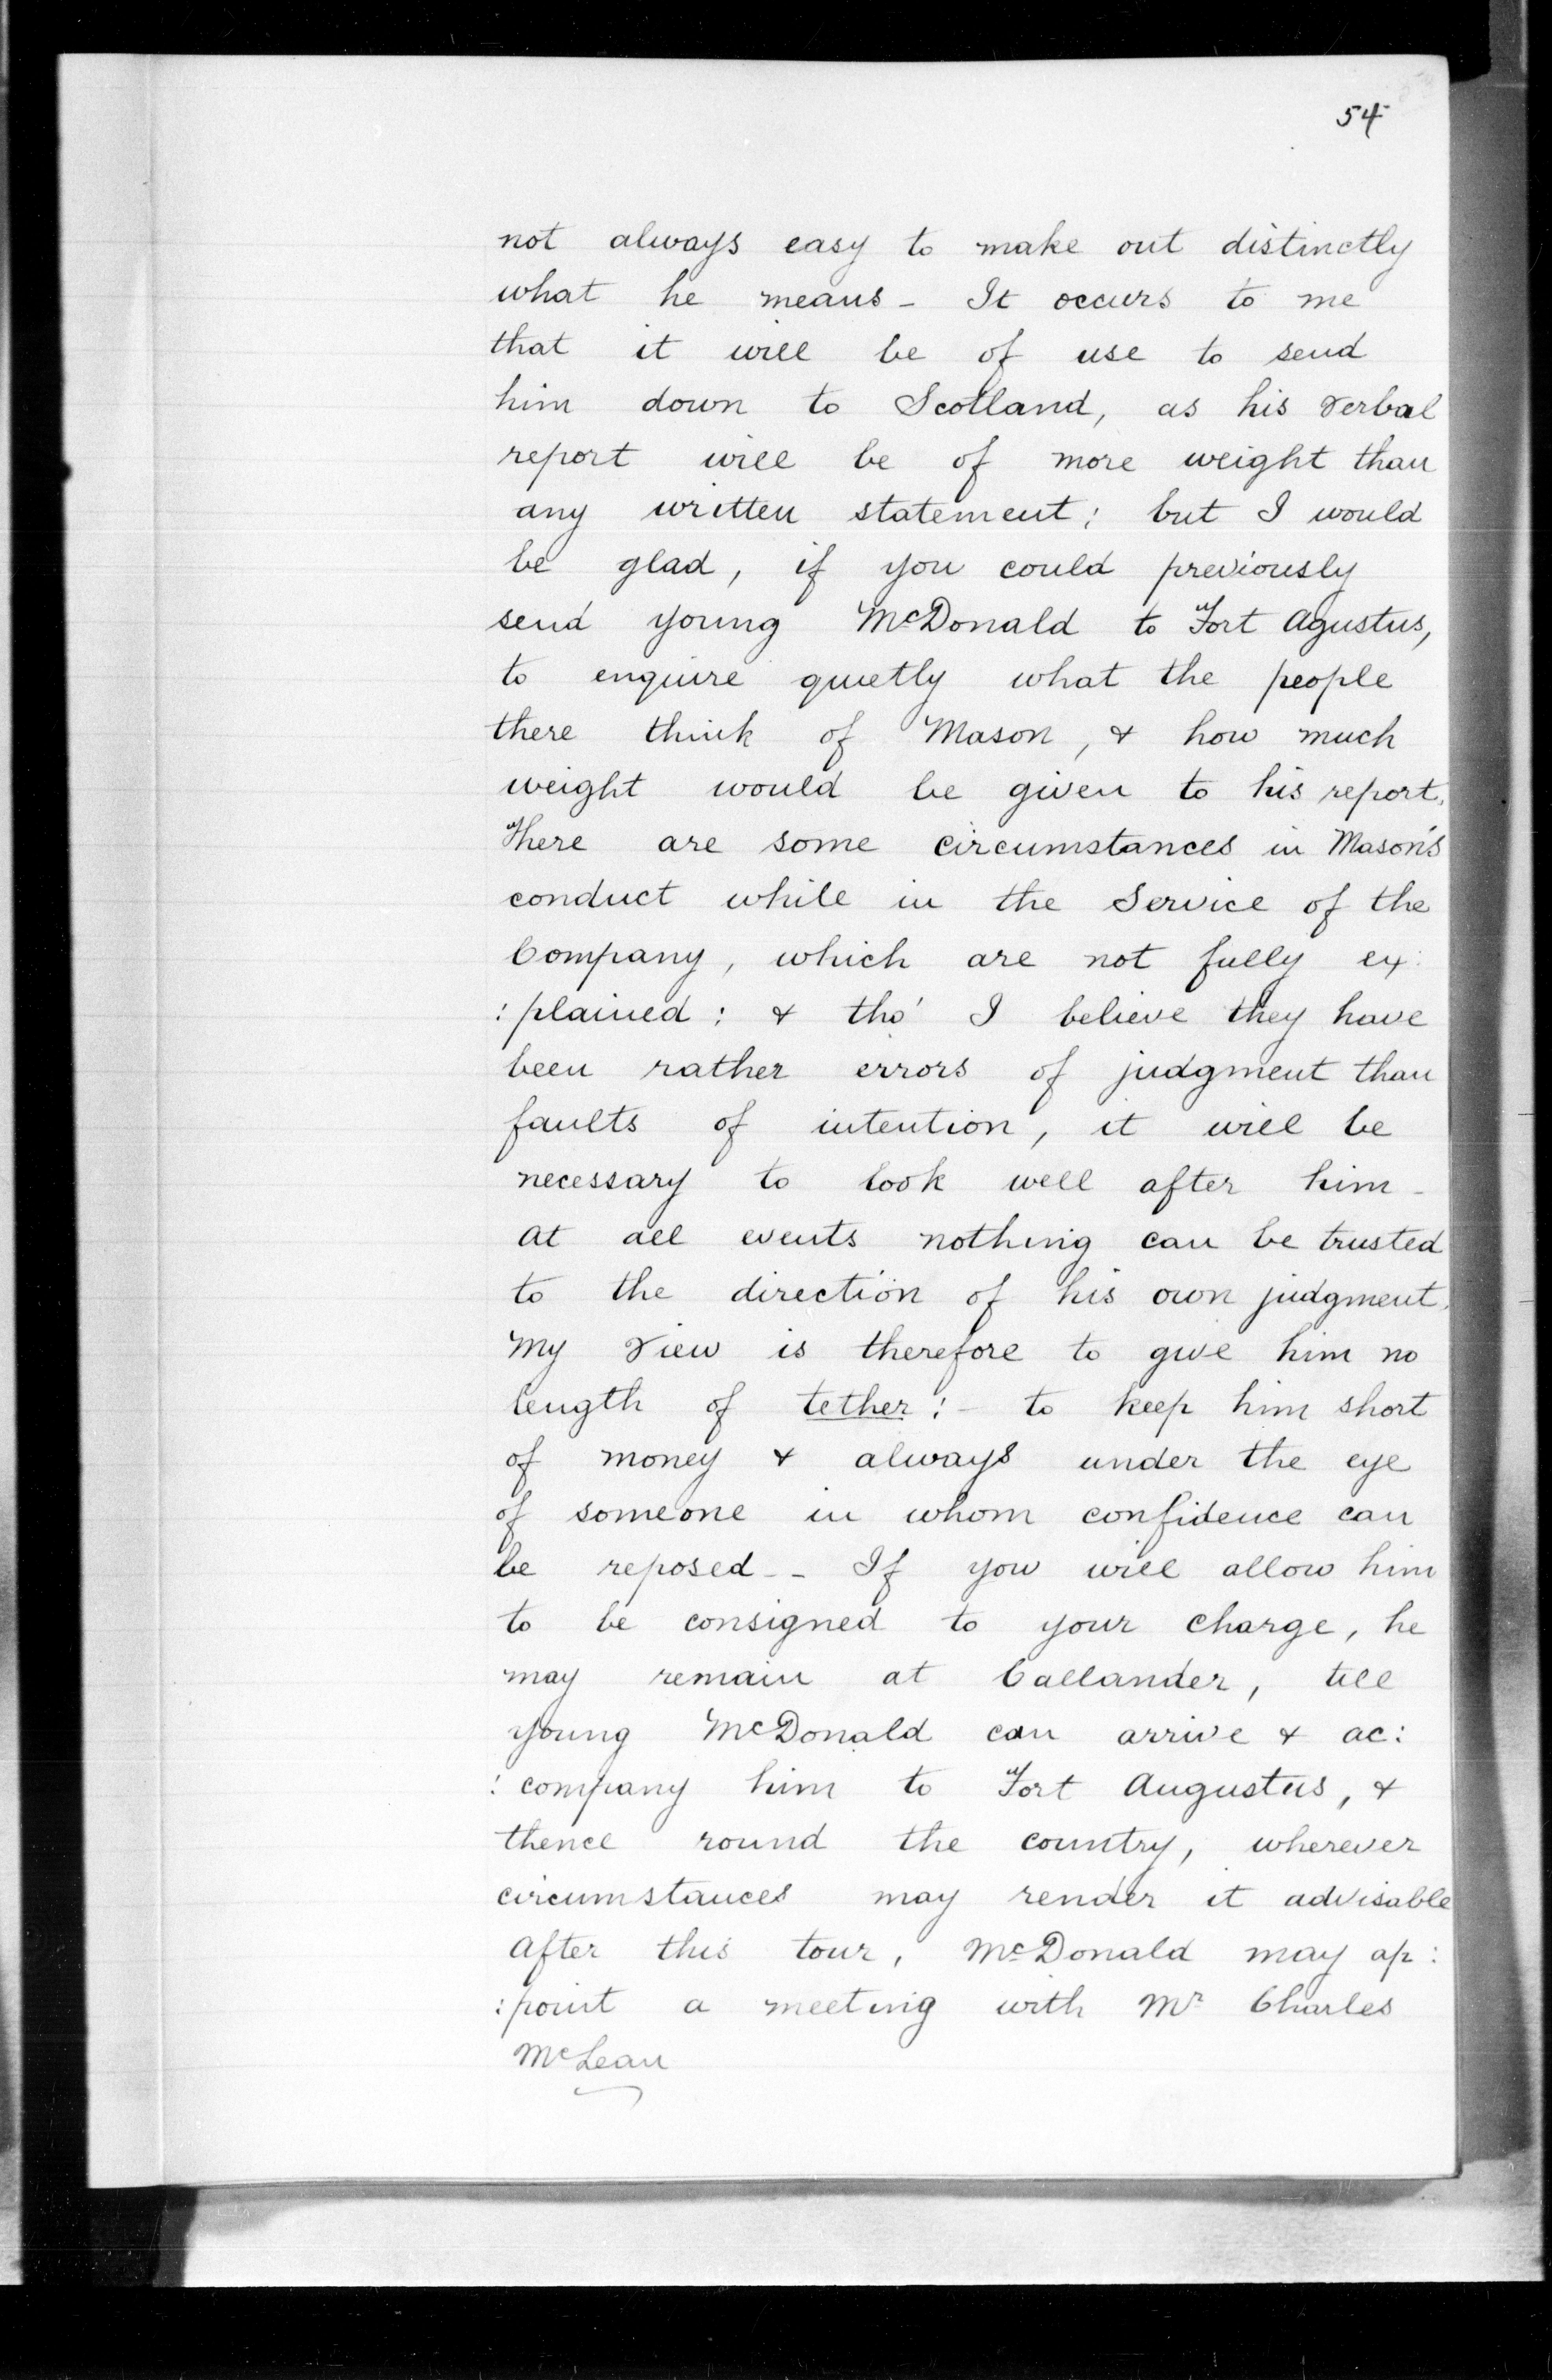 54
not always easy to make out distinctly
what he means - It occurs to me
that it will be of use to send
him down to Scotland, as his verbal
report will be of more weight than
any written statement; but I would
be glad, if you could previously
send young McDonald to Fort Agustus,
to enquire quietly what the people
there think of Mason, & how much
weight would be given to his report.
There are some circumstances in Mason's
conduct while in the Service of the
Company, which are not fully ex:
:plained: & tho' I believe they have
been rather errors of judgment than
faults of intention, it will be
necessary to look well after him -
At all events nothing can be trusted
to the direction of his own judgment.
My view is therefore to give him no
length of tether: - to keep him short
of money & always under the eye
of someone in whom confidence can
be reposed - - If you will allow him
to be consigned to your charge, he
may remain at Callander, till
young McDonald can arrive & ac:
:company him to Fort Augustus, &
thence round the country, wherever
circumstances may render it advisable
After this tour, McDonald may ap:
:point a meeting with Mr Charles
McLean